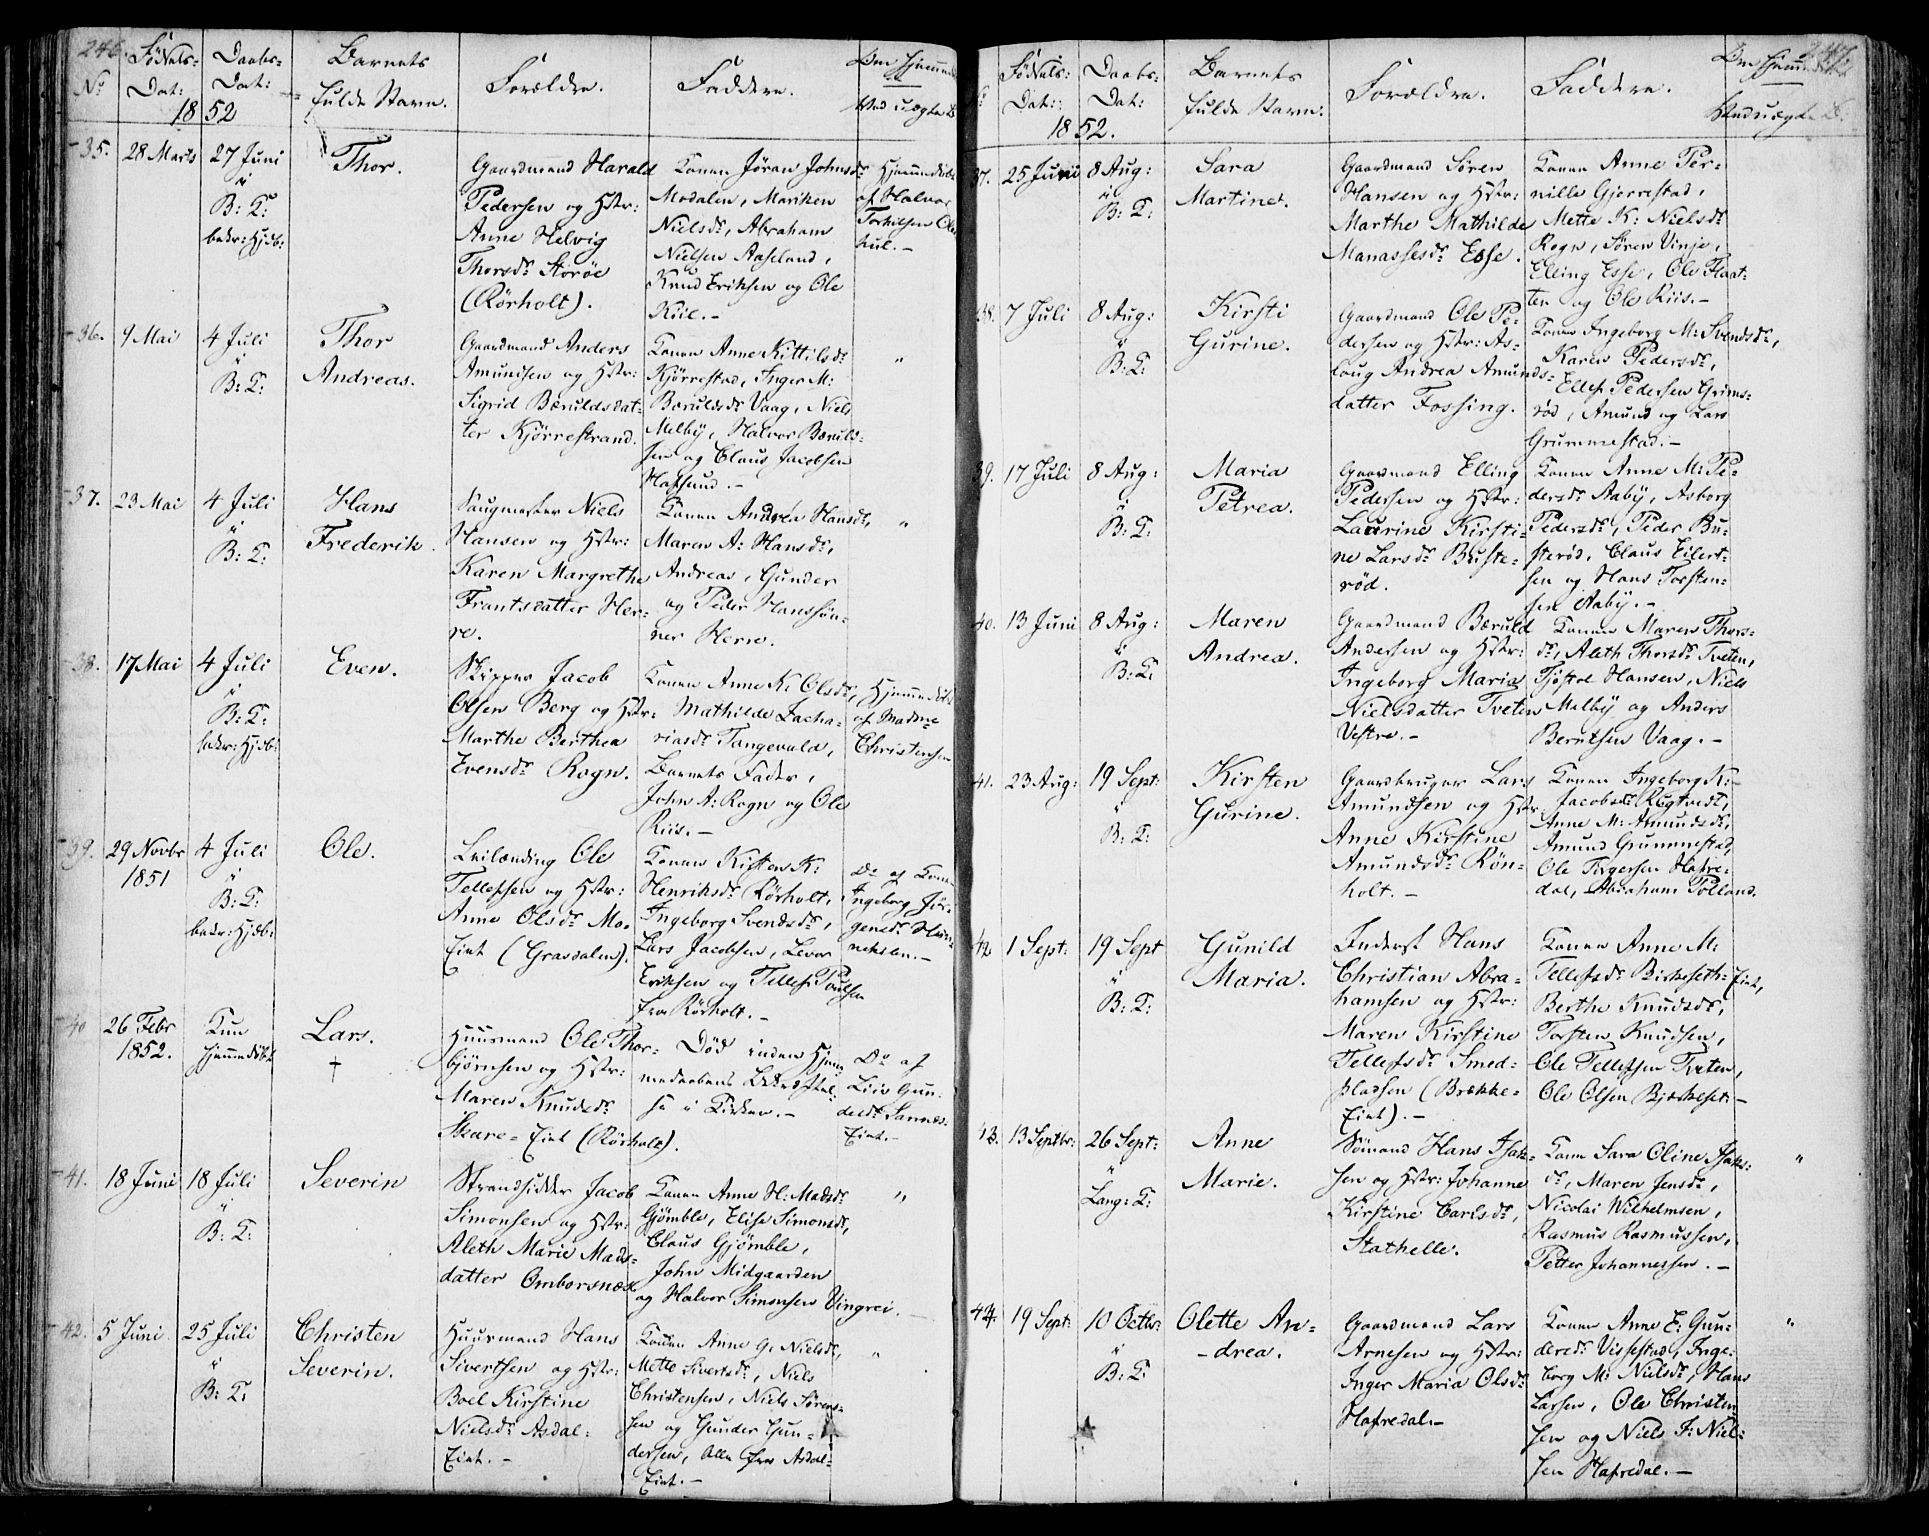 246.
No
Fødsels-
Dat:
Daabs-
Dat:
1852
Barnets
fulde Navn.
Forældre.
Faddere.
Om Hjemmed
Ved uægte B
35.
28 Marts
27 Juni
i
B: K:
bekr: Hjdb:
Thor.
Gaardmand Harald
Pedersen og Hstr:
Anne Helvig
Thorsdr. Storöe
(Rörholt).
Konen Jöran Johnsdr.
Modalen, Mariken
Nielsdr., Abraham
Nielsen Aaseland,
Knud Eriksen og Ole
Kiil.-
Hjemmedöbt
af Halvor
Torkilsen
36.
9 Mai
4 Juli
i
B: K:
Thor
Andreas.
Gaardmand Anders
Amundsen og Hstr:
Sigrid Bæruldsdat-
ter Kjörrestrand.
Konen Anne Kittilsdr.
Kjörrestad, Inger M:
Bæruldsdr. Vaag, Niels
Melby, Halvor Bæruld-
sen og Claus Jacobsen
Hafsund.-
"
37.
23 Mai
4 Juli
i
B: K:
Hans
Frederik.
Saugmester Niels
Hansen og Hstr:
Karen Margrethe
Frantsdatter Her-
re.
Konen Andrea Hansdr.,
Maren A: Hansdr.,
Andreas, Gunder
og Peder Hanssön-
ner Herre.
"
38.
17 Mai
4 Juli
i
B: K:
bekr: Hjdb:
Even.
Skipper Jacob
Olsen Berg og Hstr:
Marthe Berthea
Evensdr. Rogn.
Konen Anne K: Olsdr.,
Mathilde Zacha-
riasdr. Tangevald,
Barnets Fader,
John A: Rogn og Ole
Riis.-
Hjemmedöbt
af Madme
Christensen
39.
29 Novbr
1851
4 Juli
i
B: K:
bekr: Hjdb:
Ole.
Leilænding Ole
Tellefsen og Hstr:
Anne Olsdr. Mo-
Eiet (Grasdalen).
Konen Kisten K:
Henriksdr. Rörholt,
Ingeborg Svendsdr.,
Lars Jacobsen, Levor
Eriksen og Tellef Poulsen
fra Rörholt.-
Do af Konen
Ingeborg Jör-
gensdr.
40
26 Febr
1852.
Kun
hjemmedöbt
Lars.
†
Huusmand Ole Thor-
björnsen og Hstr:
Maren Knudsdr.
Skare-Eiet (Rörholt).
Död inden Hjem-
medaabens Bekræftel-
se i Kirken.-
Do af
Liv Gun-
dersdr. Sannes-
Eiet.-
41.
18 Juni
18 Juli
i
B: K:
Severin
Strandsidder Jacob
Simonsen og Hstr:
Aleth Marie Mads-
datter Omborsnæs
Konen Anne H: Madsdr.
Gjömble, Elise Simonsdr.,
Claus Gjömble,
John Midgaarden
og Halvor Simonsen Vingrei.
"
42.
5 Juni
25 Juli
i
B: K:
Christen
Severin.
Huusmand Hans
Sivertsen og Hstr:
Boel Kirstine
Nielsdr. Asdal-
Eiet.-
Konen Anne G: Nielsdr.,
Mette Sivertsdr., Niels
Christensen, Niels Sören-
sen og Gunder Gun-
dersen, Alle fra Asdal-
Eiet.-
"
247
Fødsels:
Dat:
Daabs-
Dat:
1852.
Barnets
fulde Navn.
Forældre.
Faddere.
Om Hjemmed
Ved uægte B.
37.
25 Juni
8 Aug:
i
B: K:
Sara
Martine.
Gaardmand Sören
Hansen og Hstr:
Marthe Mathilde
Manassesdr. Esse.
Konen Anne Per-
nille Gjerrestad,
Mette K: Nielsdr.
Rogn, Sören Vinje,
Elling Esse, Ole Flaat-
ten og Ole Riis.-
38.
7 Juli
8 Aug:
i
B: K:
Kirsti
Gurine.
Gaardmand Ole Pe-
dersen og Hstr: As-
laug Andrea Amunds-
datter Fossing.
Konen Ingeborg M: Svendsdr.,
Karen Pedersdr.,
Ellef Pedersen Grims-
röd, Amund og Lars
Grummestad.-
39.
17 Juli
8 Aug:
i
B: K:
Maria
Petrea.
Gaardmand Elling
Pedersen og Hstr:
Laurine Kirsti-
ne Larsdr. Buste-
röd.
Konen Anne M: Pe-
dersdr. Aaby, Asborg
Pedersdr., Peder Bu-
steröd, Claus Eilert-
sen og Hans Torsten-
sen Aaby.-
40.
13 Juni
8 Aug:
i
B: K:
Maren
Andrea.
Gaardmand Bæruld
Andersen og Hstr:
Ingeborg Maria
Nielsdatter Tveten
Vestre.-
Konen Maren Thors-
dr., Aleth Thorsdr. Tveten,
Tjöstol Hansen, Niels
Melby og Anders
Berntsen Vaag.-
41.
23 Aug:
19 Sept:
i
B: K:
Kirsten
Gurine.
Gaardbruger Lars
Amundsen og Hstr:
Anne Kirstine
Amundsdr. Rön-
holt.-
Konen Ingeborg K:
Jacobsdr. Rugtvedt,
Anne M: Amundsdr.,
Amund Grummestad,
Ole Torgersen Hafre-
dal, Abraham Tolland.
42
1 Sept:
19 Sept
i
B: K:
Gunild
Maria.
Inderst Hans
Christian Abra-
hamsen og Hstr:
Maren Kirstine
Tellefsdr. Smed-
pladsen (Brække-
Eiet).-
Konen Anne M:
Tellefsdr. Birkeseth-Eiet,
Berthe Knudsdr.,
Torsten Knudsen,
Ole Tellefsen Tveten,
Ole Olsen Bjerkeset.-
43.
13 Septbr:
26 Sept:
i
Lang: K:
Anne
Marie.
Sömand Hans Isak-
sen og Hstr: Johanne
Kirstine Carlsdr.,
Stathelle.
Konen Sara Oline Isaks-
dr., Maren Jensdr.,
Nicolai Wilhelmsen,
Rasmus Rasmussen,
Petter Johannessen.-
"
44.
19 Sept:
10 Octbr:
i
B: K:
Olette An-
-drea.
Gaardmand Lars
Arnesen og Hstr:
Inger Maria Olsdr.
Hafredal.-
Konen Anne E: Gun-
dersdr. Vissestad, Inge-
borg M: Nielsdr., Hans
Larsen, Ole Christen-
sen og Niels J: Niel-
sen Hafredal.-
"